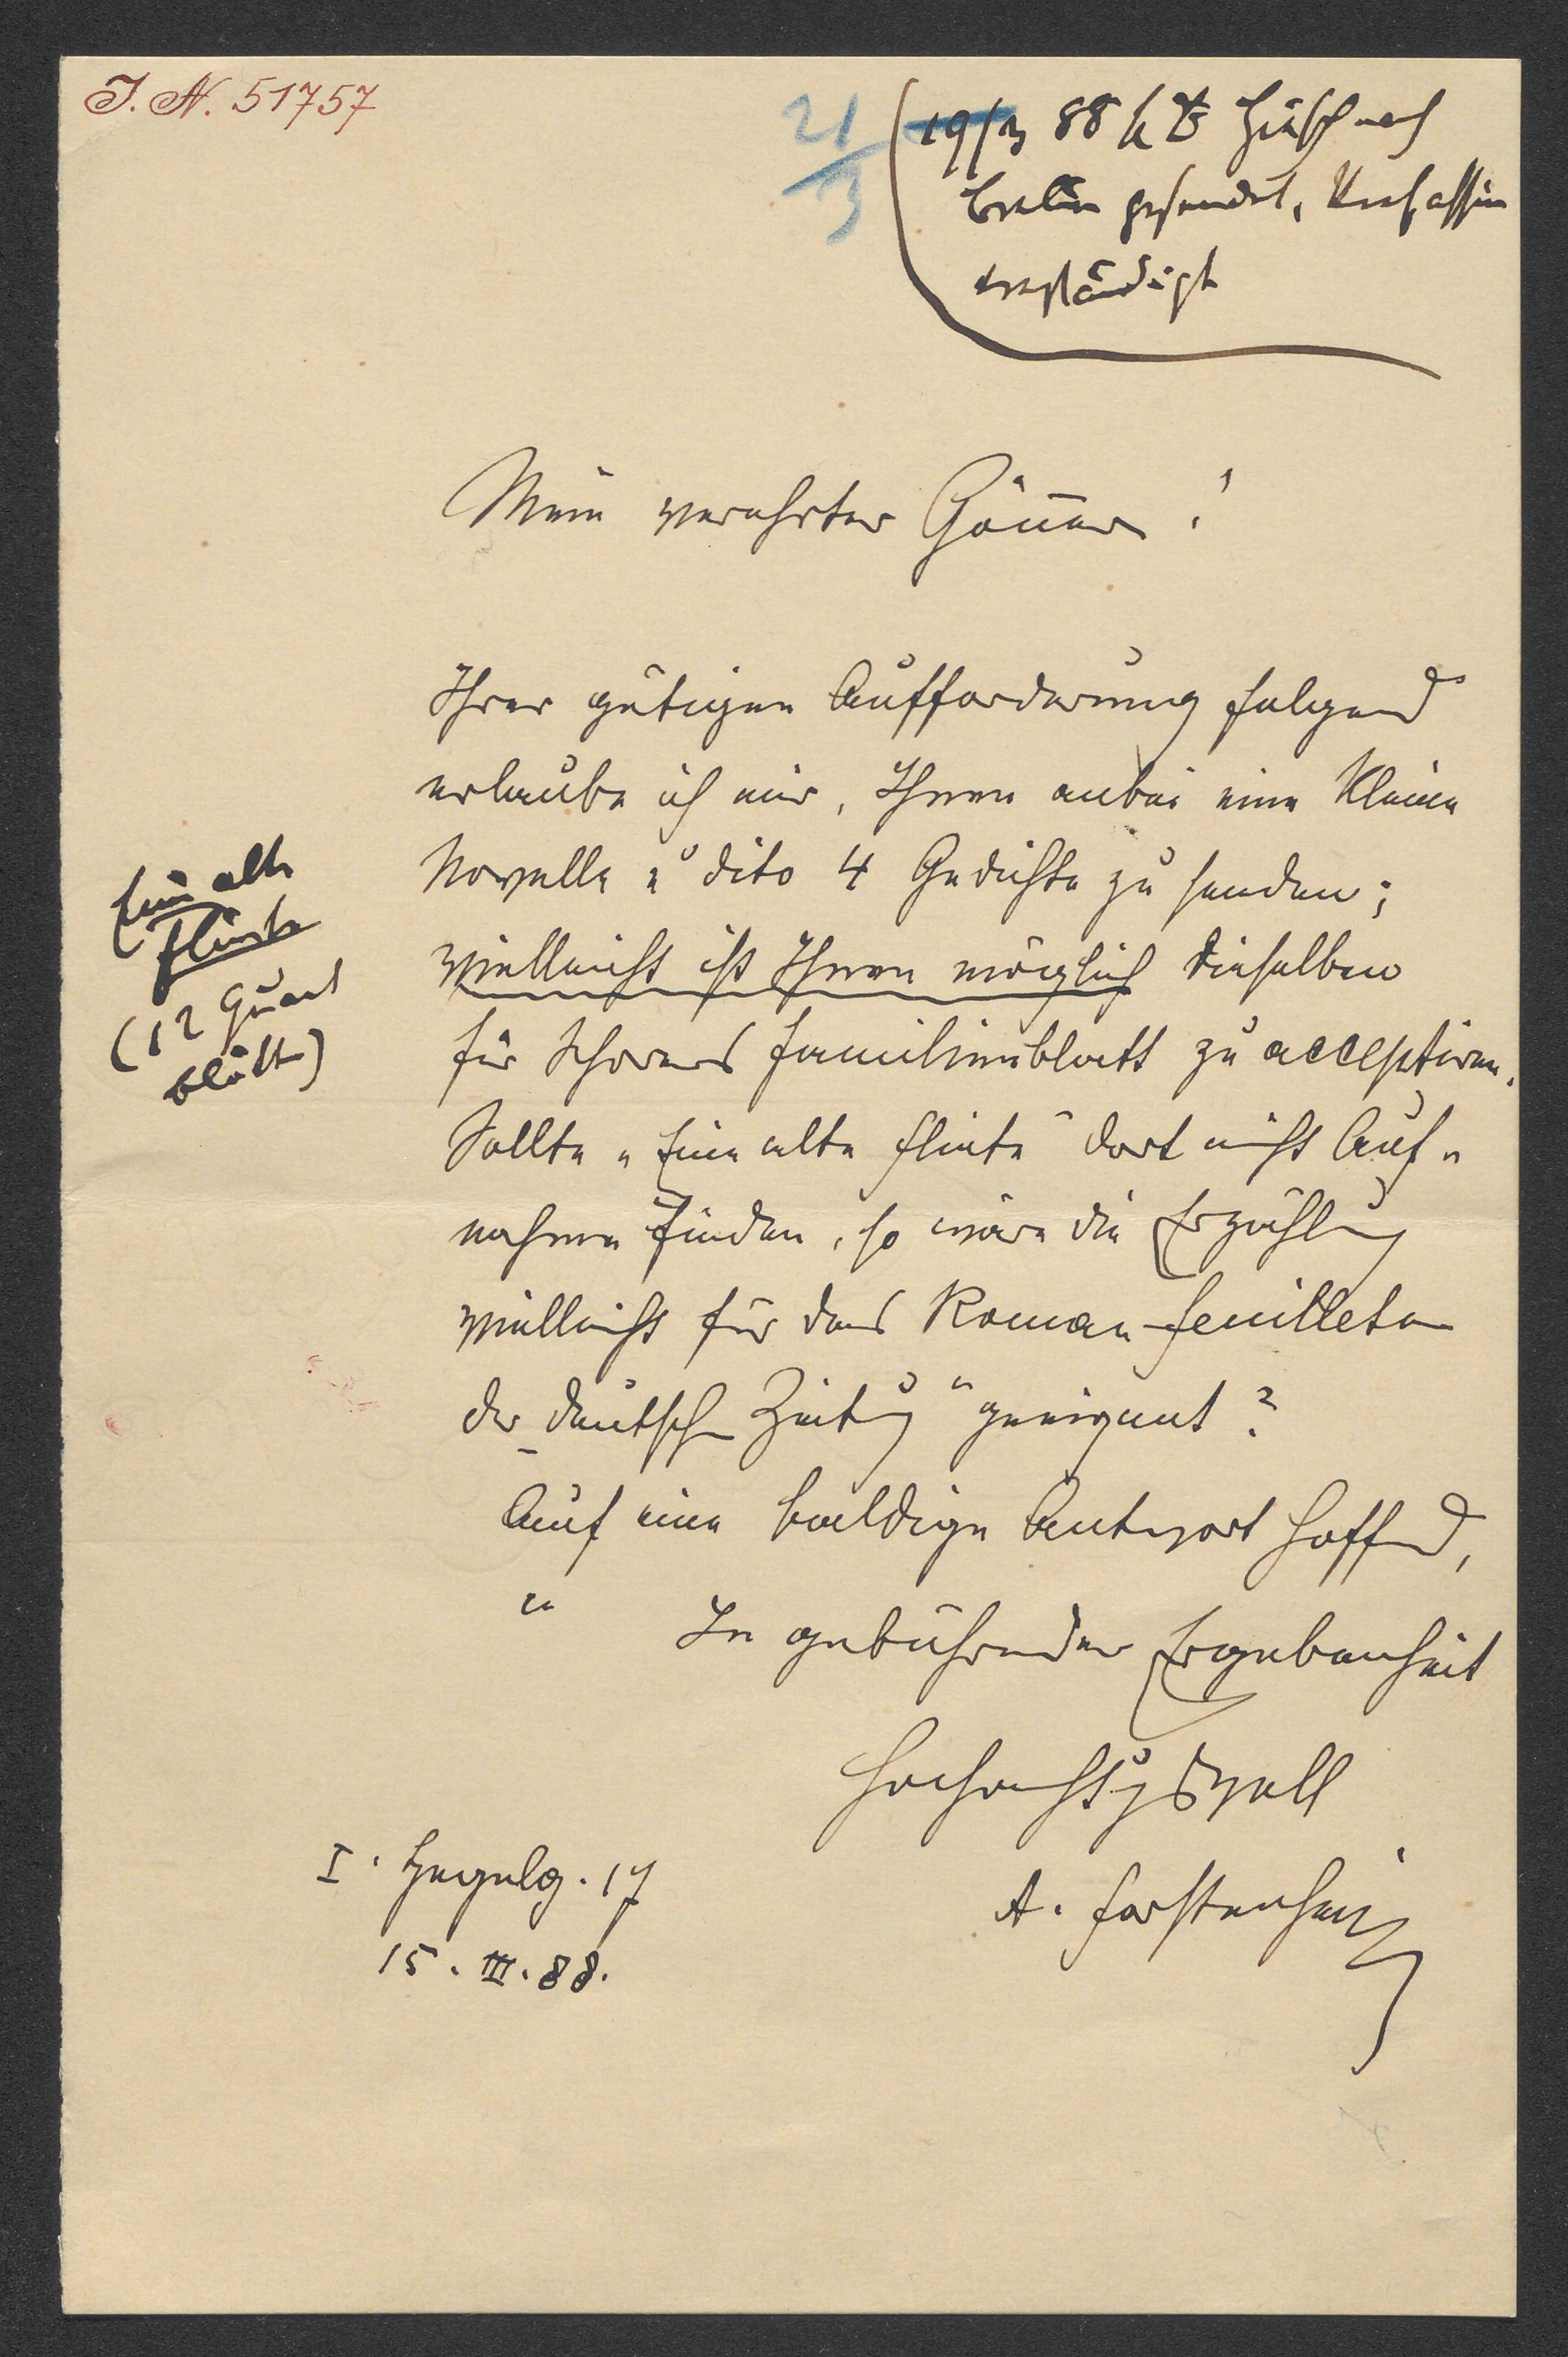 I. N. 51757
21/3
19/3 88 Hirsch nach
Berlin gesendet, Verfasserin
verständigt
Mein verehrter Gönner!
Ihrer gütigen Aufforderung folgend
erlaube ich mir, Ihnen anbei eine kleine
Novelle u dito 4 Gedichte zu senden;
vielleicht ist Ihnen möglich dieselben
für Schorers Familienblatt zu acceptiren.
Sollte „Eine alte Flinte" dort nicht Auf-
nahme finden, so wäre die Erzählung
vielleicht für das Roman-feuilleton
der „deutschen Zeitung" geeignet?
Auf eine baldige Antwort hoffend,
In gebührender Ergebenheit
Hochachtungsvoll
A. Forstenheim
I. Hegelg. 17
15. III. 88.
Eine alte
Flinte
(12 Quart
blätter)